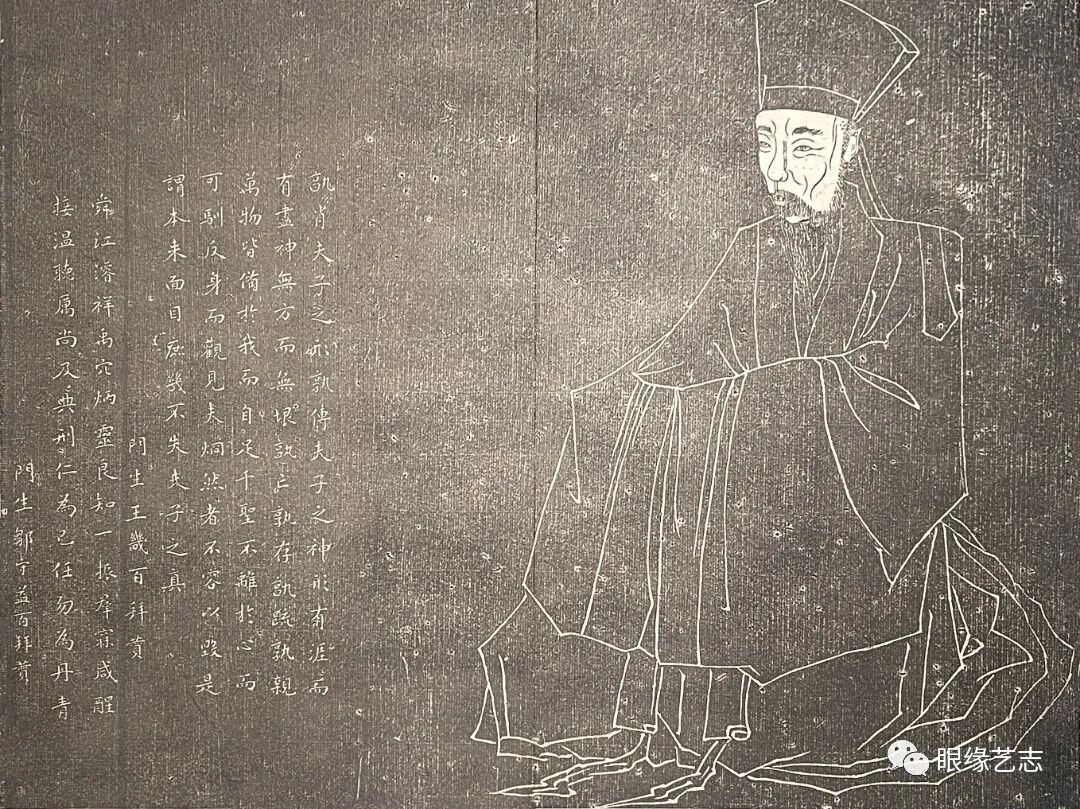 孰肖夫子之形孰傳夫子之神形有涯而
有盡神無方而無垠孰亡孰存孰疏孰親
萬物皆備於我而自足千聖不離於心而
可馴反身而觀見夫炯然者不容以毀是
謂本来面目庶幾不失夫子之真
門生王畿百拜贊
舜江濬祥禹穴炳靈良知一振群寐咸醒
接温聽厲尚及典刑仁為己任勿為丹青
門生鄒守益百拜贊
眼缘艺志